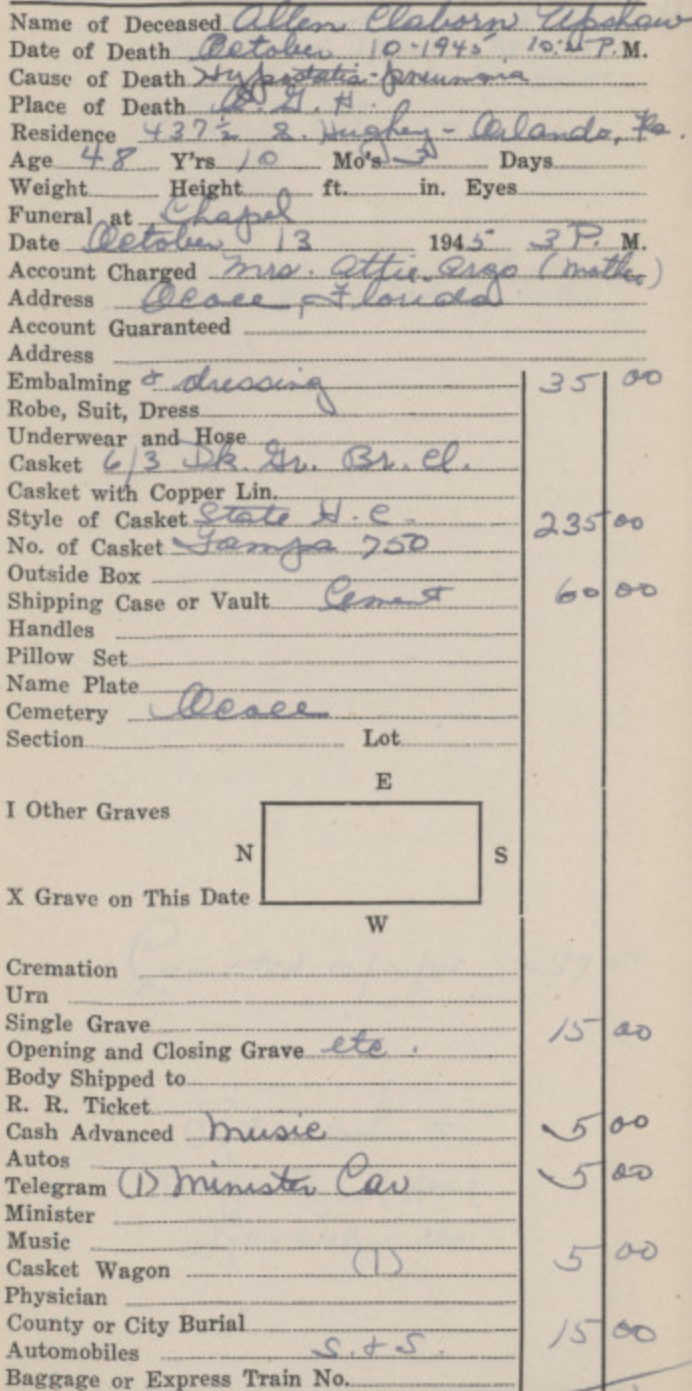 Name of Deceased Allen Claborn Upshaw
Date of Death October 10-1945 P.M.
Cause of Death Hypostatic-pneumonia
Place of Death O. G. H.
Residence 437½ S. Hughey - Orlando, Fla.
Age 48 Y'rs 10 Mo's 3 Days
Weight Height ft. in. Eyes
Funeral at Chapel
Date October 13 1945 3 P. M.
Account Charged Mrs. Attie Argo (mother)
Address Ocoee, Florida
Account Guaranteed
Address
Embalming & dressing 35 00
Robe, Suit, Dress
Underwear and Hose
Casket 6/3 Dk. Gr. Br. Cl.
Casket with Copper Lin.
Style of Casket State H.C. 235 00
No. of Casket Tampa 750
Outside Box
Shipping Case or Vault Cement 60 00
Handles
Pillow Set
Name Plate
Cemetery Ocoee
Section Lot
E
I Other Graves
N S
X Grave on This Date
W
Cremation
Urn
Single Grave
Opening and Closing Grave etc. 15 00
Body Shipped to
R. R. Ticket
Cash Advanced Music 5 00
Autos
Telegram (1) Minister Car 5 00
Minister
Music
Casket Wagon (1) 5 00
Physician
County or City Burial
Automobiles S. & S. 15 00
Baggage or Express Train No.